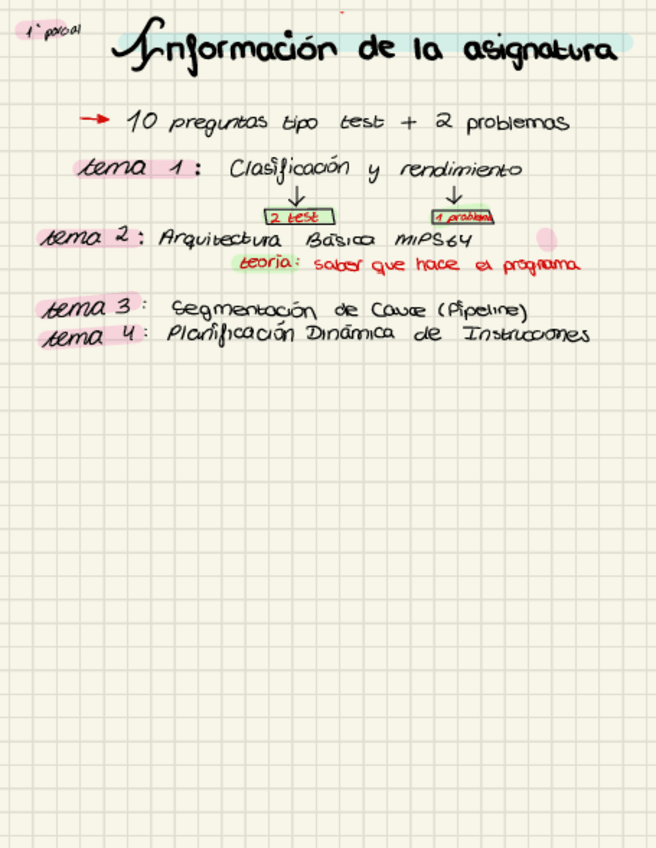 1º parcial
Información de la asignatura
→ 10 preguntas tipo test + 2 problemas
tema 1: Clasificación y rendimiento
↓ ↓
2 test 1 problema
tema 2: Arquitectura Básica MIPS64
teoría: saber que hace el programa
tema 3: Segmentación de Cauce (Pipeline)
tema 4: Planificación Dinámica de Instrucciones